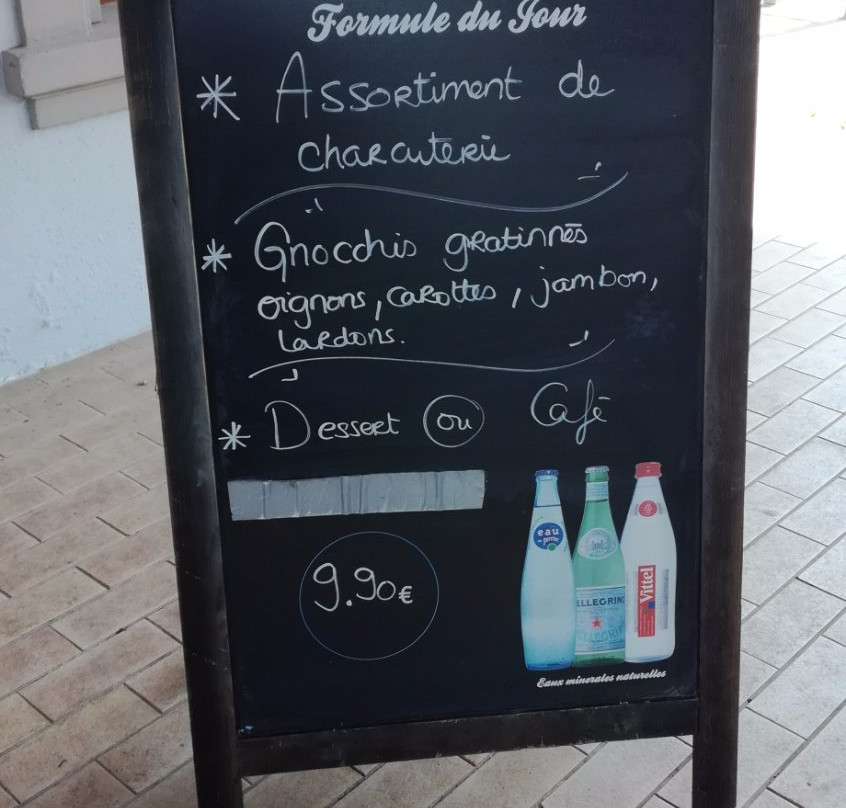 Formule du Jour
* Assortiment de
charcuterie
* Gnocchis gratinnés
oignons, carottes, jambon,
lardons.
* Dessert ou Café
9.90€
eau
de Perrier
ELLEGRINO
Vittel
Eaux minerales naturelles